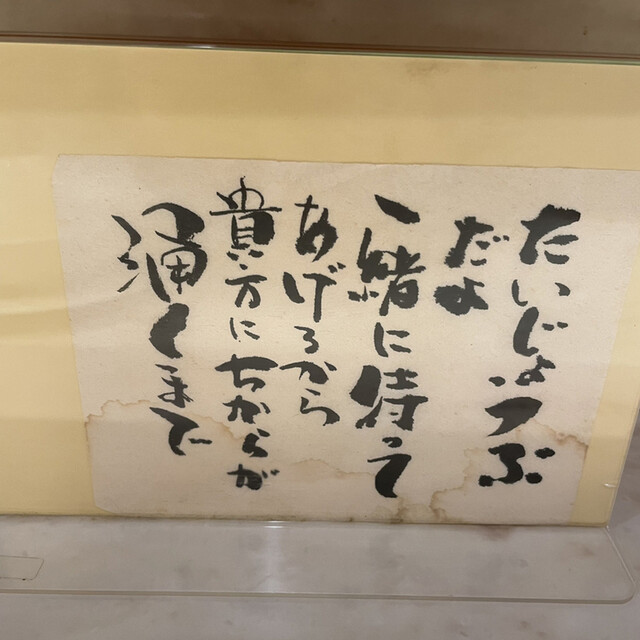 たいじょうぶ
だよ
一緒に待って
あげるから
貴方にちからが
涌くまで